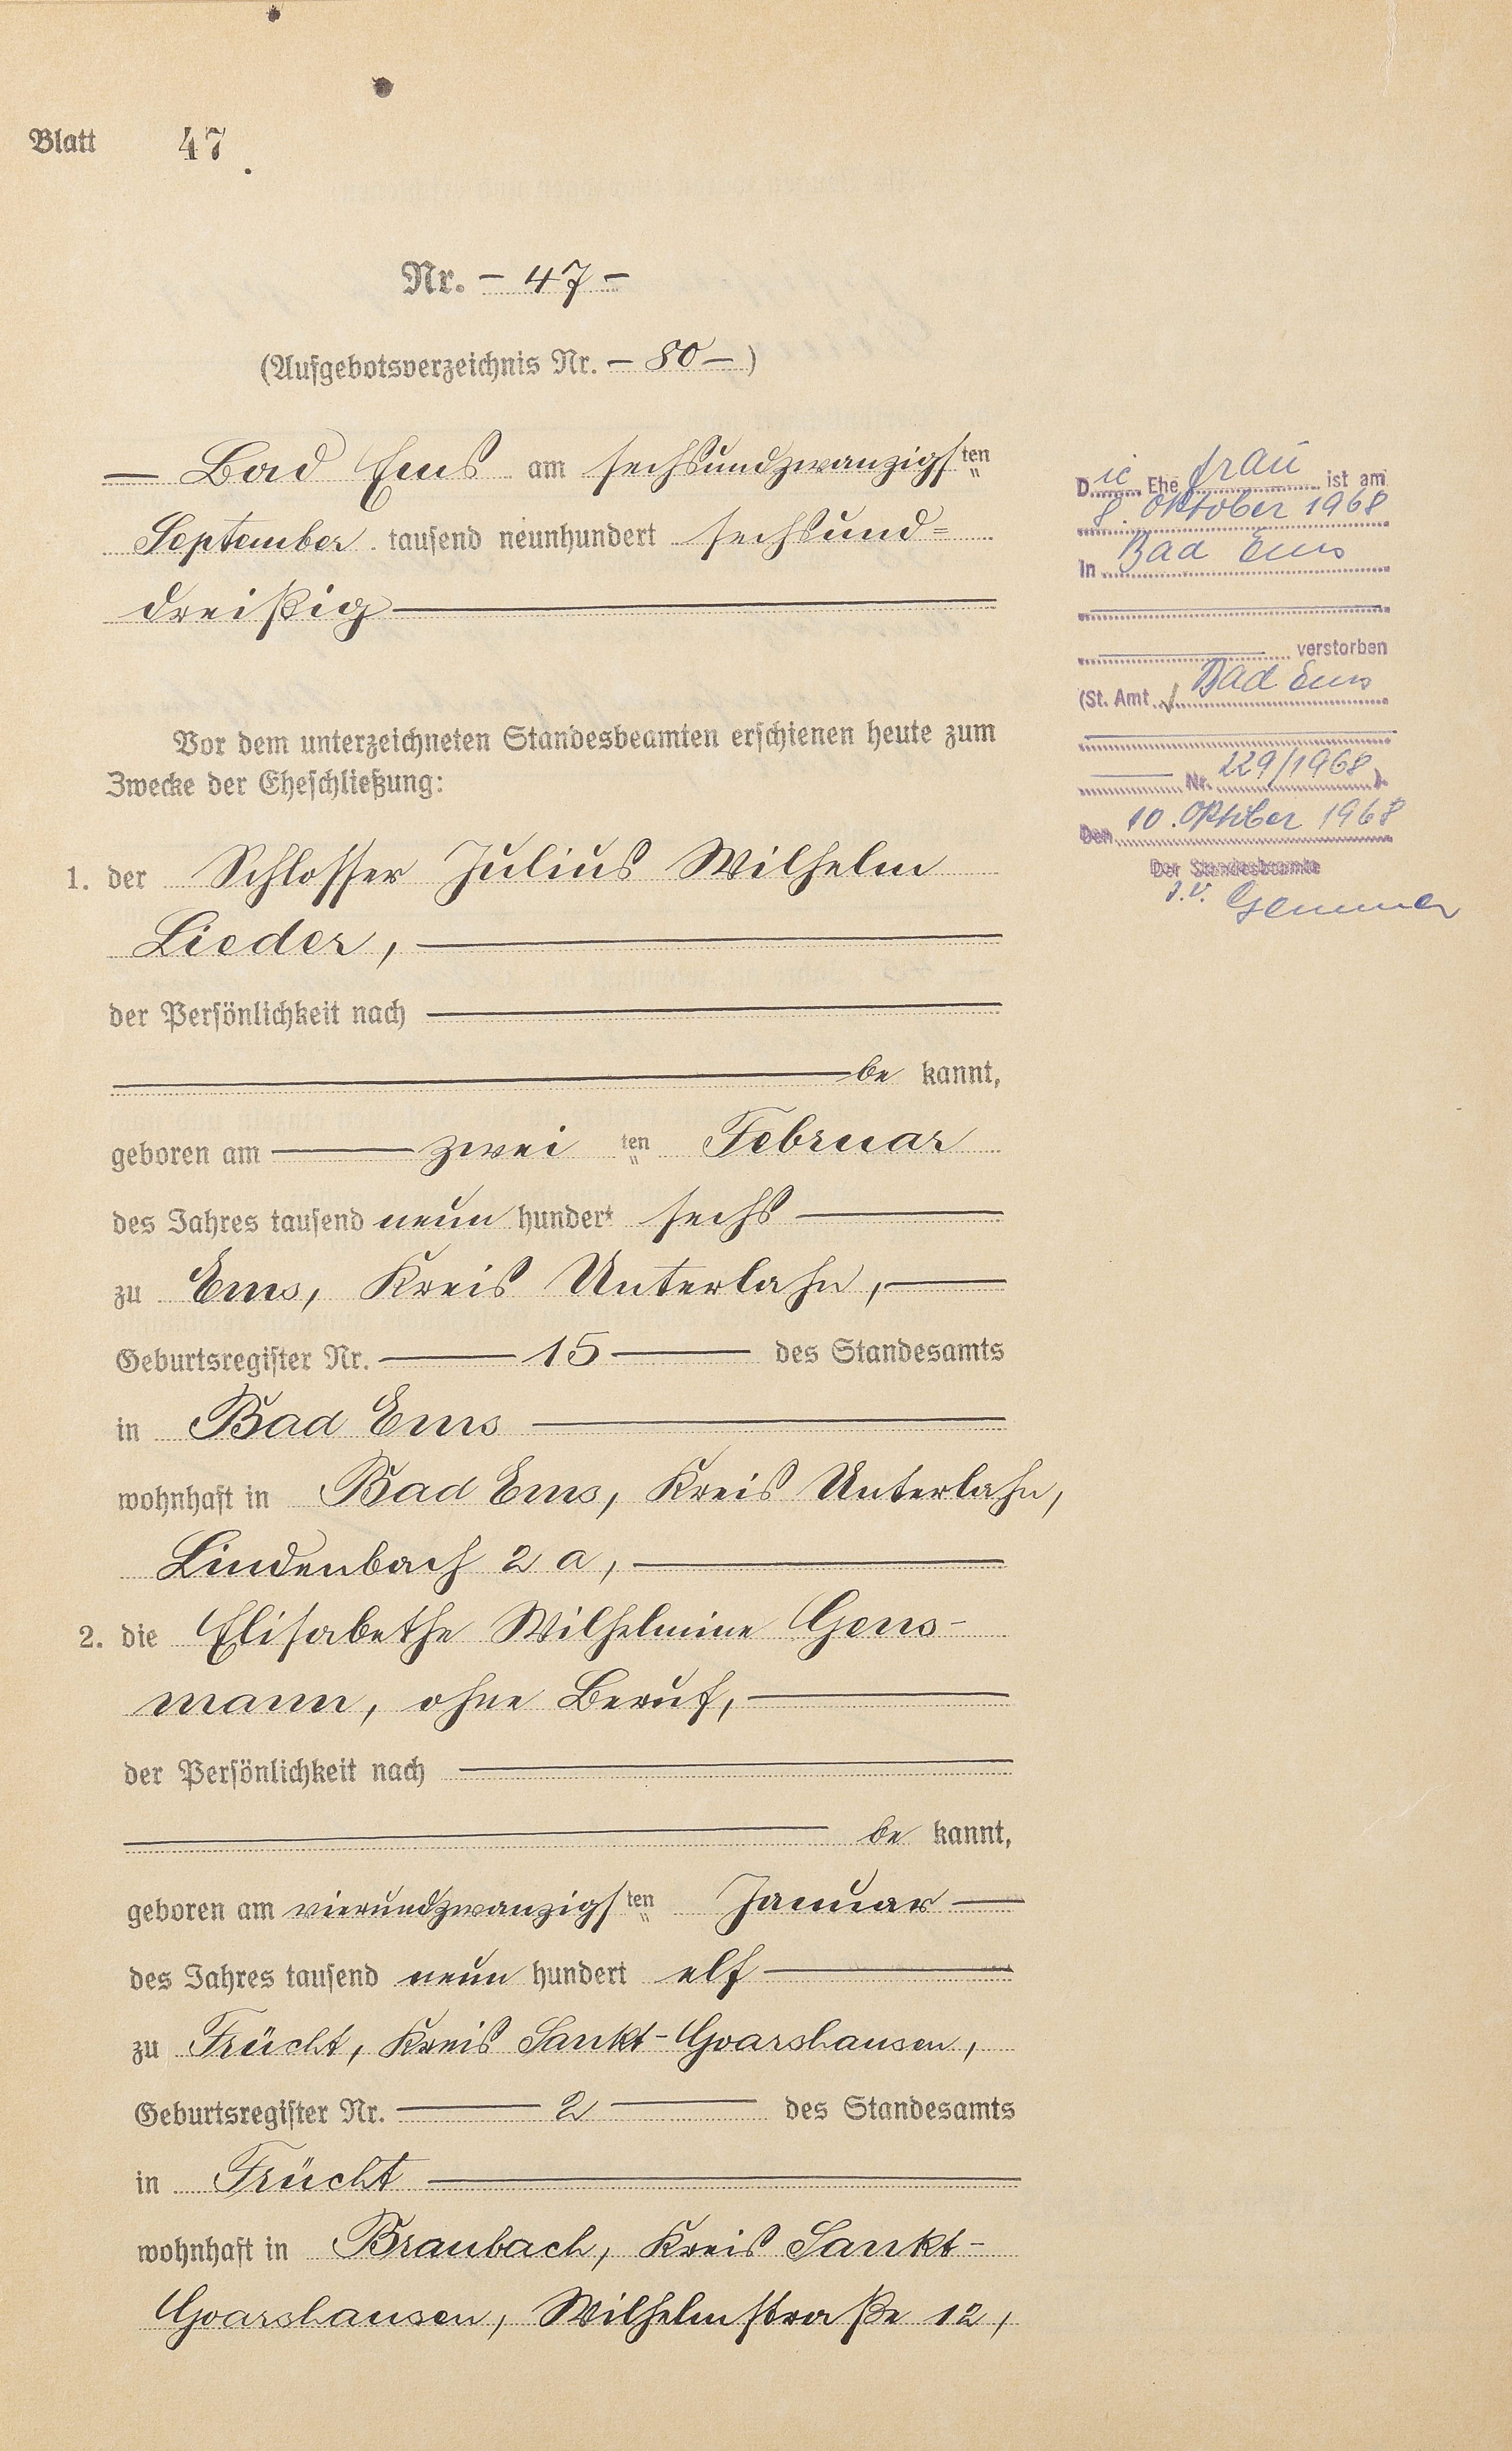 Blatt 47.
Nr. - 47 -
(Aufgebotsverzeichnis Nr. - 80 -)
— Bad Ems am sechsundzwanzigsten
September tausend neunhundert sechsund=
dreißig
Vor dem unterzeichneten Standesbeamten erschienen heute zum
Zwecke der Eheschließung:
1. der Schlosser Julius Wilhelm
Lieder,
der Persönlichkeit nach
be kannt,
geboren am zwei ten Februar
des Jahres tausend neun hundert sechs
zu Ems, Kreis Unterlahn,
Geburtsregister Nr. 15 des Standesamts
in Bad Ems
wohnhaft in Bad Ems, Kreis Unterlahn,
Lindenbach 2 a,
2. die Elisabethe Wilhelmine Gens-
mann, ohne Beruf,
der Persönlichkeit nach
be kannt,
geboren am vierundzwanzigsten Januar
des Jahres tausend neun hundert elf
zu Frücht, Kreis Sankt-Goarshausen,
Geburtsregister Nr. 2 des Standesamts
in Frücht
wohnhaft in Braubach, Kreis Sankt-
Goarshausen, Wilhelmstraße 12,
Die Ehefrau ist am
8. Oktober 1968
in Bad Ems
verstorben
(St. Amt Bad Ems
Nr. 229/1968).
Den 10. Oktober 1968
Der Standesbeamte
I.V. Gemmer